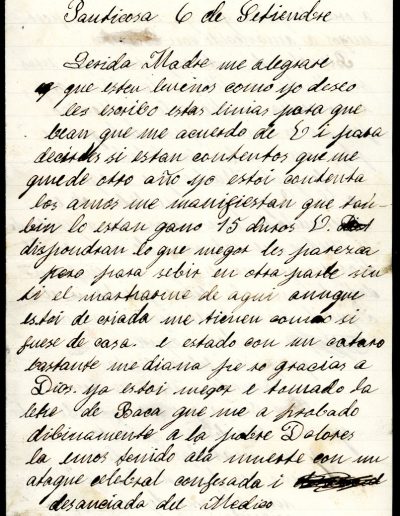 Panticosa 6 de Setiembre
Qerida Madre me alegrare
que esten buenos como yo deseo
les escribo estas linias para que
bean que me acuerdo de V i para
decirles si estan contentos que me
quede otro año yo estoi contenta
los amos me manifiestan que tan
bin lo estan gano 15 duros V.
dispondran lo que megor les parezca
pero para sebir en otra parte sin
ti el marcharme de aqui aunque
estoi de criada me tienen como si
fuese de casa. e estado con un cataro
bastante me diana pero gracias a
Dios ya estoi megor e tomado la
leke de Baca que me a probado
dibinamente a la pobre Dolores
la emos tenido ala muerte con un
ataque celebral confesada i
desanciada del Medico